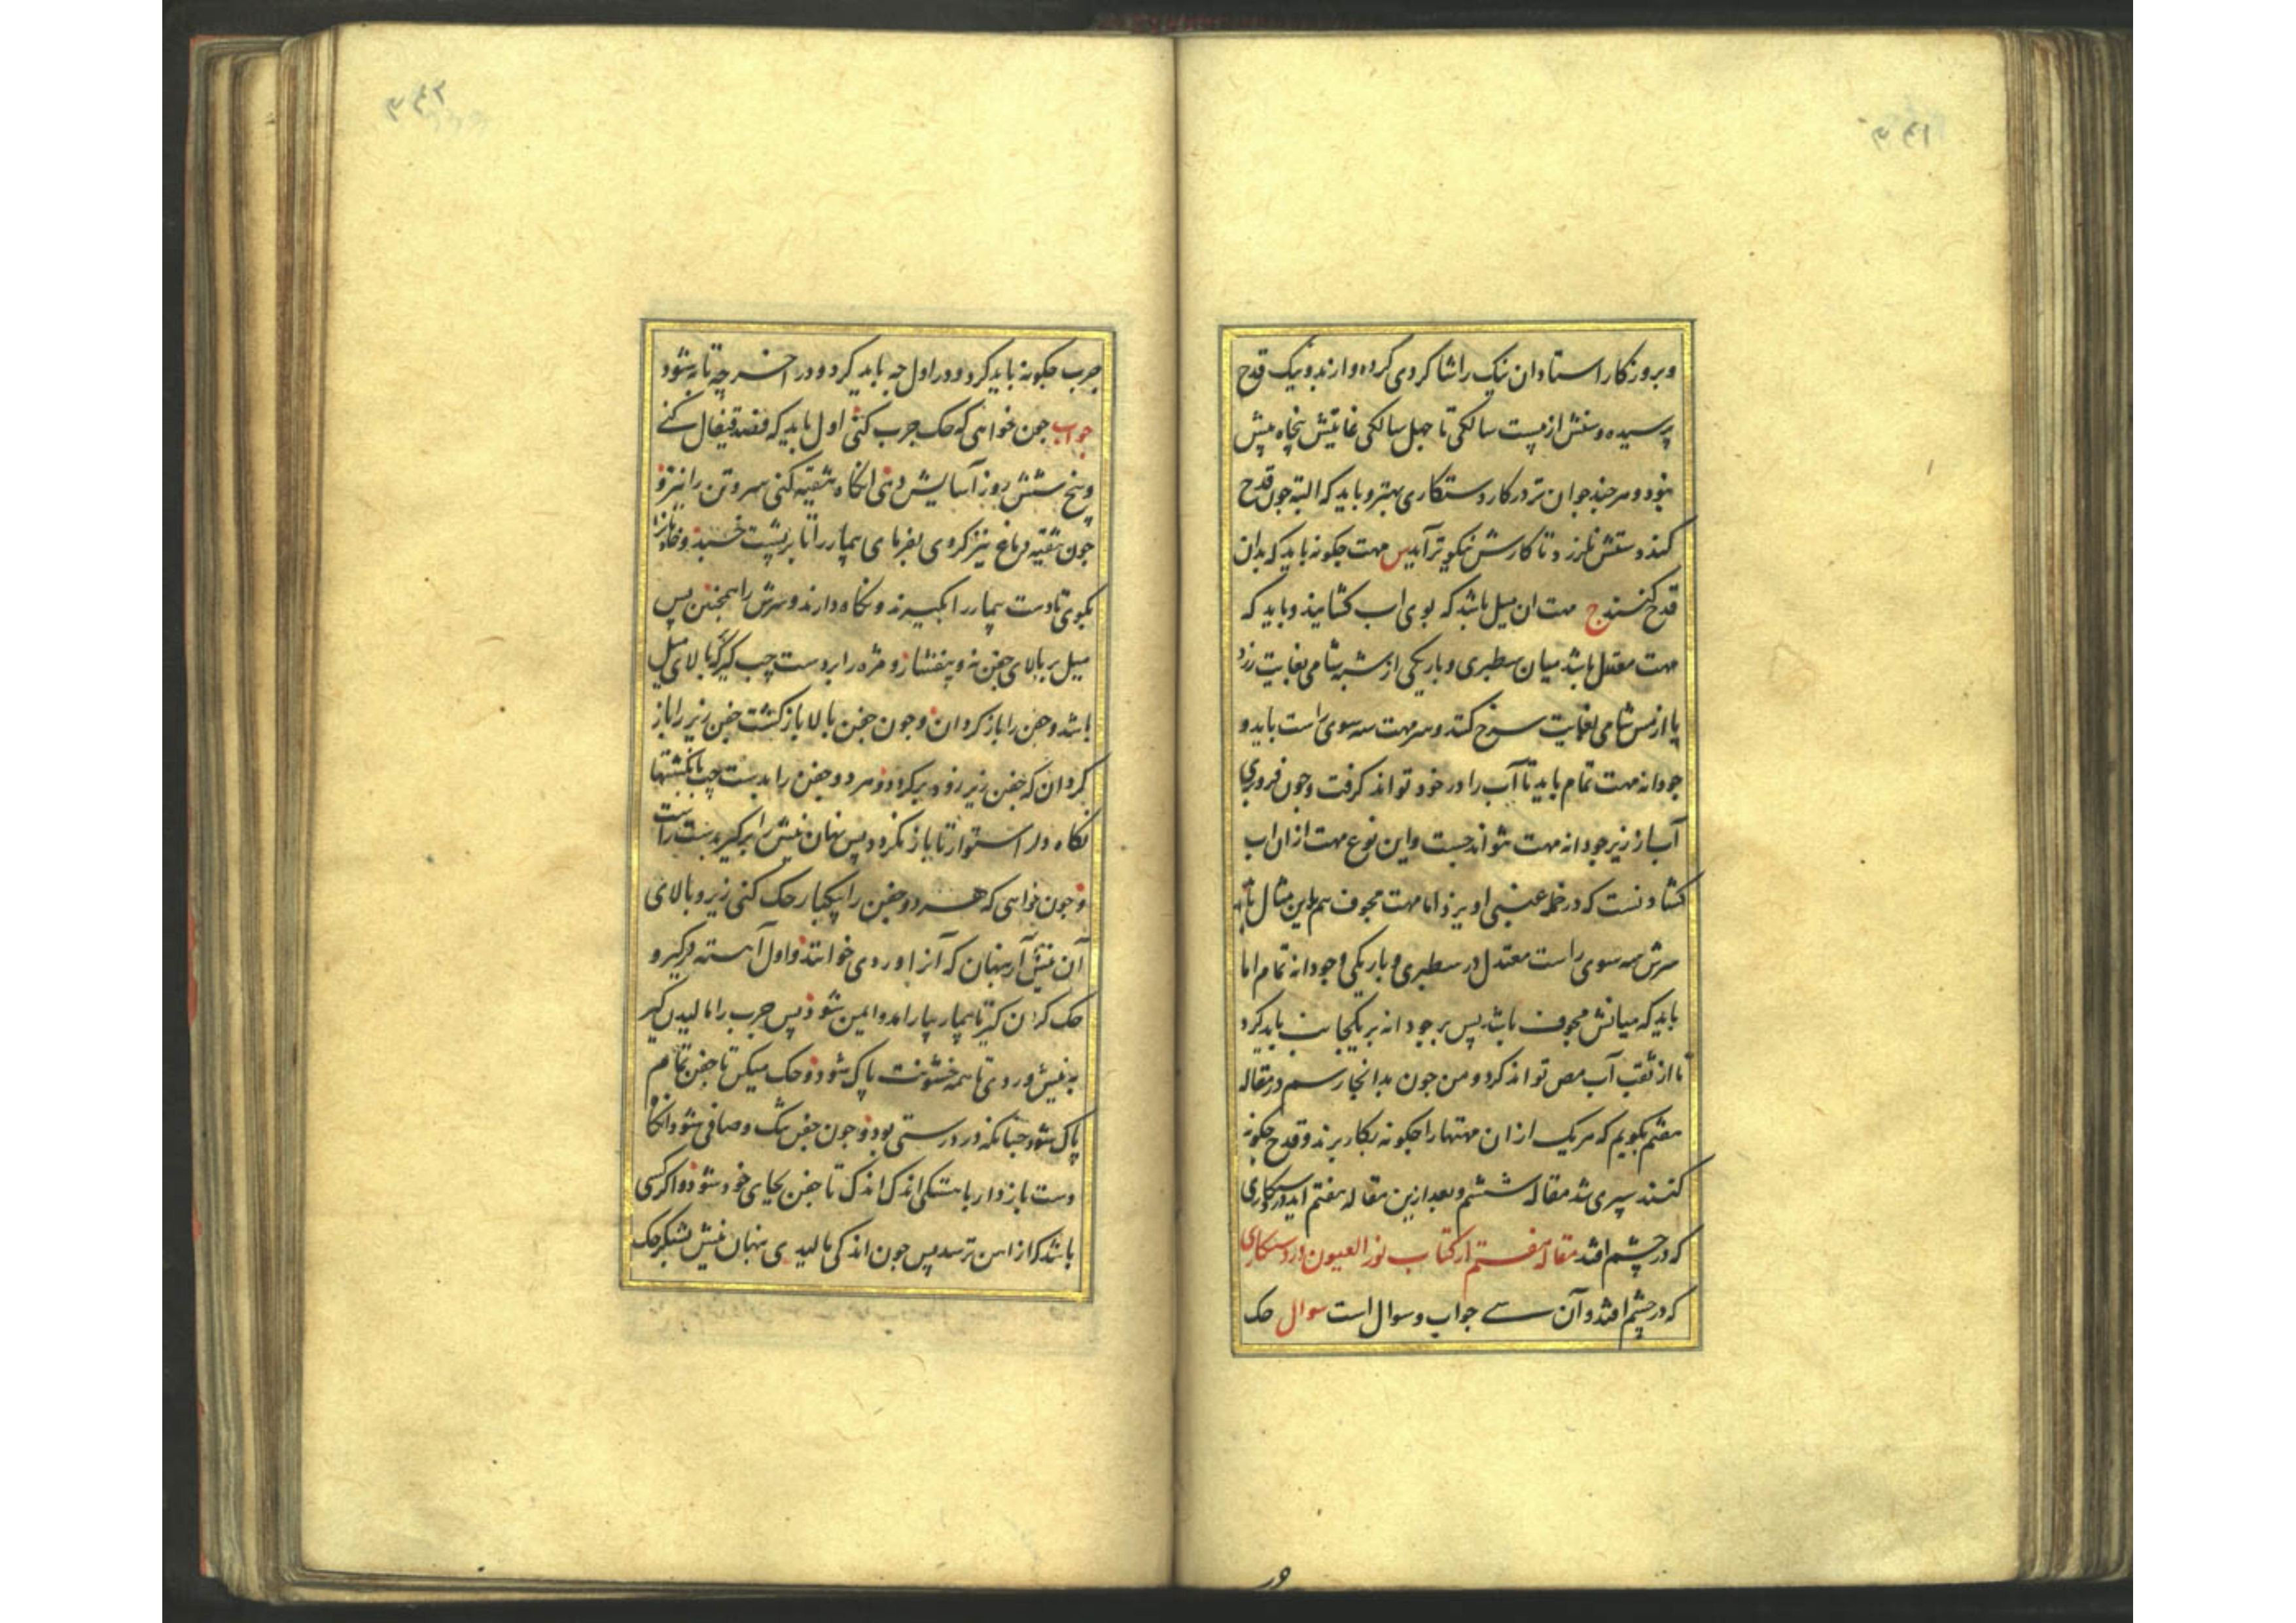 و بروزکار استادان نیک را شاکردی کرده و ازند و نیک قدح
پرسیده و سنش از بیست سالکی تا چهل سالکی غایتش پنجاه بیش
نبود و هر چند جوان تر در کار دستکاری بهتر و باید که البته چون قدح
کند دستش نلرزد تا کارش نیکوتر آید س مهت چکونه باید که بدان
قدح کنند ج مهت ان میل باشد که بوی اب کشایند و باید که
مهت معتدل باشد میان سطبری و باریکی از شبه شامی بغایت زرد
یا از مس شامی بغایت سرخ کند و سر مهت سه سوی راست باید و
جودانه مهت تمام باید تا آب را در خود تواند کرفت و چون فرو بری
آب از زیر جودانه مهت نتواند جست و این نوع مهت از ان اب
کشادنست که در خمل عنبی اویزد اما مهت مجوف هم براین مثال باید
سرش سه سوی راست معتدل در سطبری و باریکی و جودانه تمام اما
باید که میانش مجوف باشد پس بر جودانه بر یکجانب باید کرد
تا از ثقب آب مص تواند کرد و من چون بدانجا رسم در مقاله
هفتم بکویم که هر یک از ان مهتها را چکونه بکار برند و قدح چکونه
کنند سپری شد مقاله ششم و بعد ازین مقاله هفتم اید در دستکاری
که در چشم افتد مقاله هفتم از کتاب نور العیون در دستکاری
که در چشم افتد و آن سی جواب و سوال است سوال حک
در
جرب چکونه باید کرد و در اول چه باید کرد و در اخر چه تا به شود
جواب چون خواهی که حک جرب کنی اول باید که فصد قیفال کنی
و پنج شش روز آسایش دهی انکاه تنقیه کنی سر و تن را نیز و
چون تنقیه دماغ نیز کردی بفرمای بیمار را تا بر پشت خسبد و خادم را
بکوی تا دست بیمار را بکیرند و نکاه دارند و سرش را همچنین پس
میل بر بالای جفن نه و بیفشار و مژه را بر دست چپ کیر که بالای میل
باشد و جفن را باز کردان و چون جفن بالا باز کشت جفن زیر را باز
کردان که جفن زیر زود برکردد و هر دو جفن را بدست چپ بانکشتها
نکاه دار استوار تا باز نکردد پس نهان نیش را برکیر بدست راست
و چون خواهی که هر دو جفن را یکبار حک کنی زیر و بالای
آن نیش آر پنهان که آنرا وردی خوانند و اول آهسته برکیر و
حک کردن کیر تا بیمار بیارامد و ایمن شود پس جرب را مالیدن کیر
به نیش وردی تا همه خشونت پاک شود و حک میکن تا جفن تمام
پاک شود چنانکه در درستی بود و چون جفن تنک و صافی شود انکاه
دست بازدار باهستکی اندک اندک تا جفن بجای خود شود و اکر کسی
باشد که از اهن ترسد پس چون اندکی مالیدی پنهان نیش بشکر حک